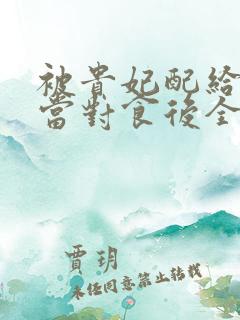 被貴妃配給
當對食後全
賈玥
未经同意禁止转载